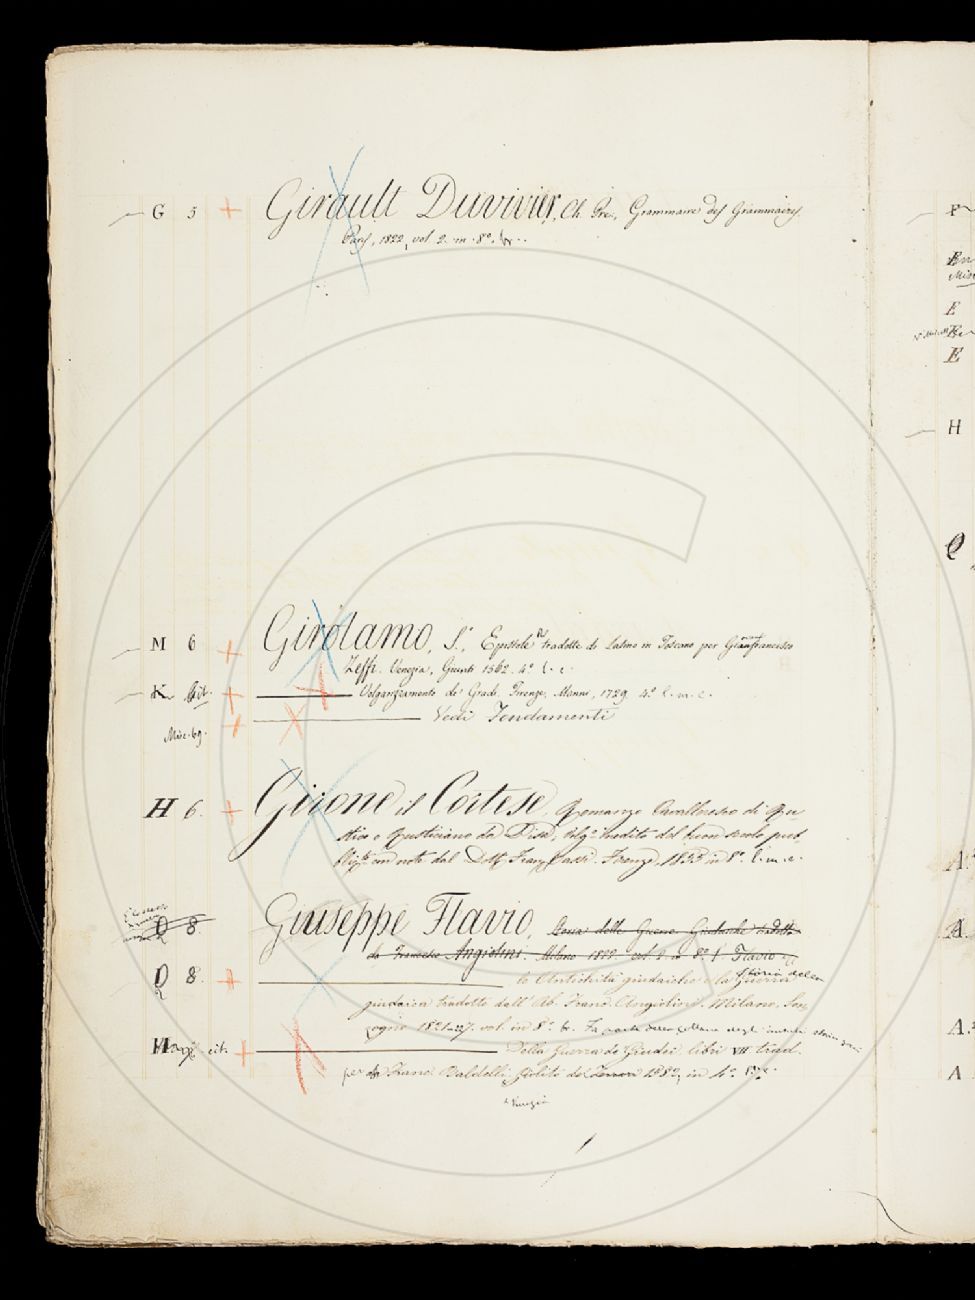 G 5 + Girault Duvivier, Ch. Pre., Grammaire des Grammaires.
Paris, 1822, vol. 2. in 8º. br..
M 6 + Girolamo, S., Epistole tradotte di Latino in Toscano per Gianfrancesco
Zeffi. Venezia, Giunti 1562. 4º l. c.
K cit. + Volgarizzamento de' Gradi. Firenze, Manni, 1729. 4º l. m. c.
Misc. 69. + Vedi Fondamenti
H 6. + Girone il Cortese, Romanzo Cavalleresco di Ru
stico o Rusticiano da Pisa, Volgº inedito del buon secolo pub
blicº con note dal Dott. Franc. Tassi. Firenze, 1855 in 8º. l. m. c.
Q 8. Giuseppe Flavio, Storia delle Guerre Giudaiche tradotta
da Francesco Angiolini. Milano 1822 vol. 2 in 8º. Flavio
Q 8. + le Antichità giudaiche e la storia della Guerra
giudaica tradotte dall' Ab. Franc. Angiolini. Milano, Son
zogno 1821-22. vol. in 8º. br. Fa parte della collana degli antichi storici
cit. + Della Guerra de' Giudei libri VII trad.
per Baldelli in 4º